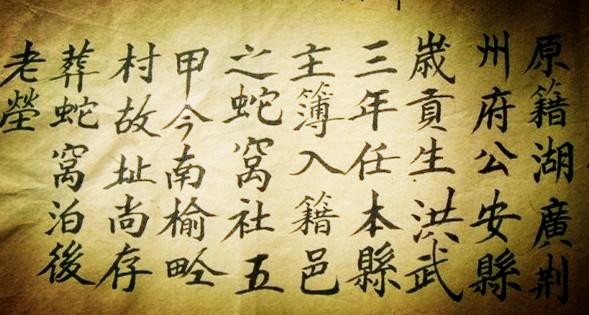 原籍湖廣荆
州府公安縣
歲貢生洪武
三年任本縣
主簿入籍邑
之蛇窩社五
甲今南榆畛
村故址尚存
葬蛇窩泊後
老塋